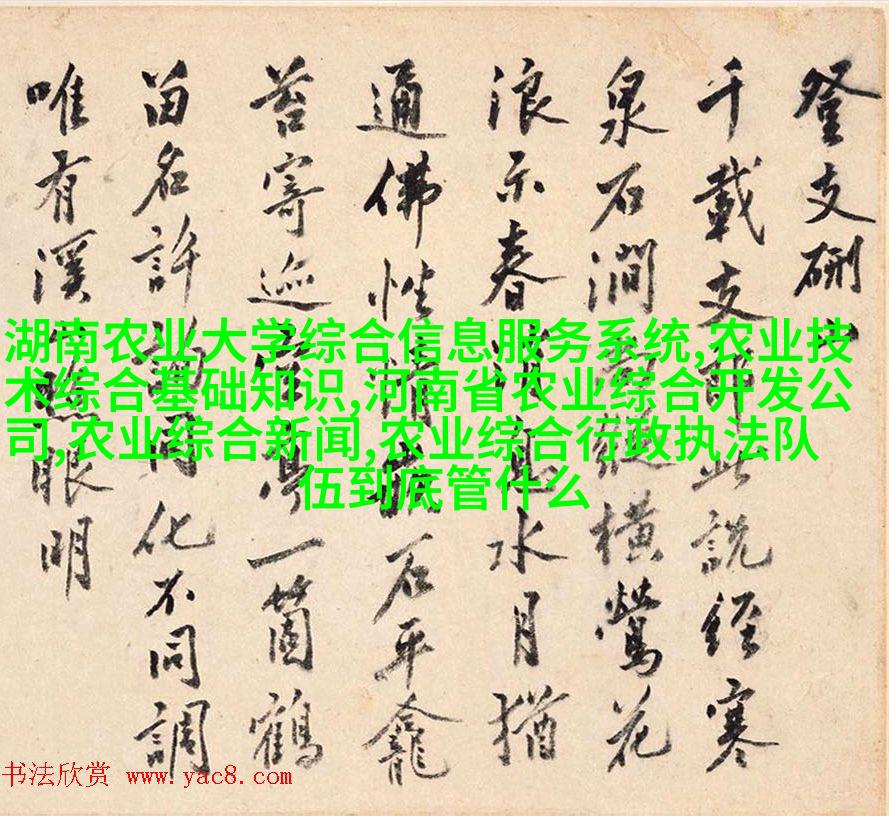 登支硎山
千載支郎此說經寒
泉石澗縱橫鶯花
浪示春消息水月猶
通佛性情石平龕
苔寄巡亭一箇鶴
留名許詢同化不同調
唯有溪山照眼明
湖南农业大学综合信息服务系统,农业技
术综合基础知识,河南省农业综合开发公
司,农业综合新闻,农业综合行政执法队
伍到底管什么
书法欣赏 www.yac8.com